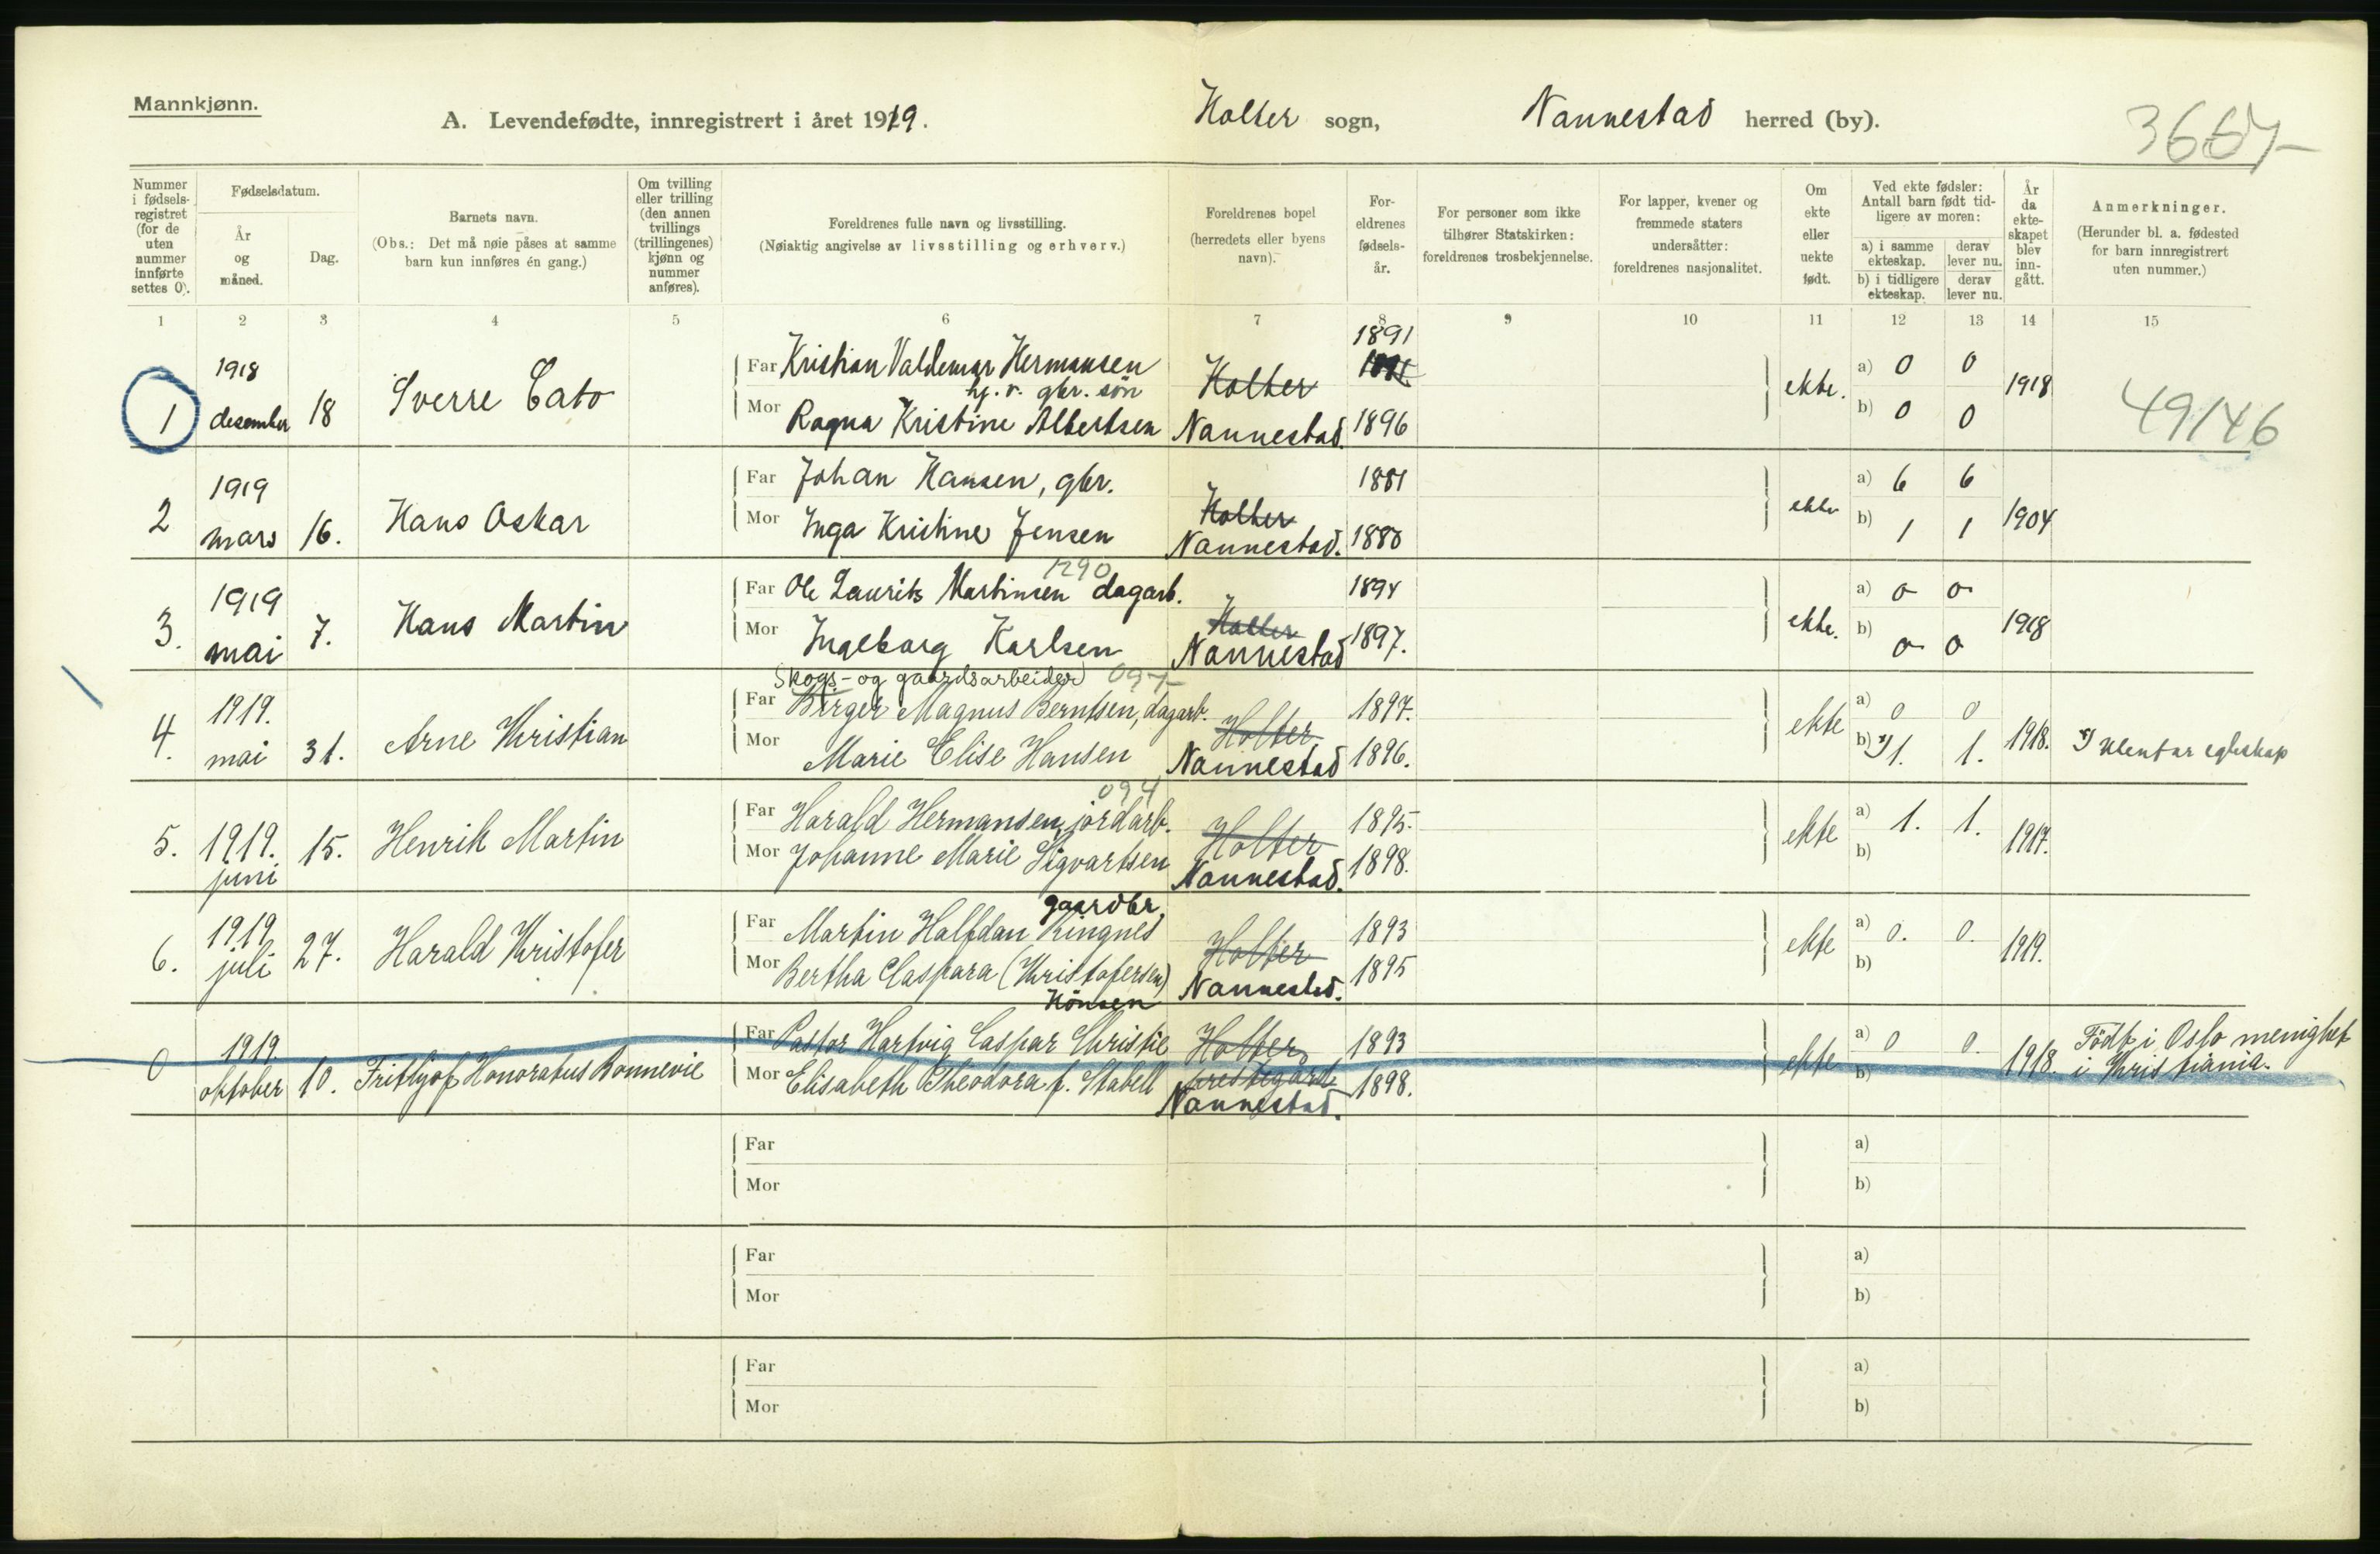 Mannkjønn.
A. Levendefødte, innregistrert i året 1919.
Holter sogn,
Nannestad herred (by).
3667
Nummer i fødsels-registret (for de uten nummer innførte settes 0).
Fødselsdatum.
År og måned.
Dag.
Barnets navn.
(Obs.: Det må nøie påses at samme barn kun innføres én gang.)
Om tvilling eller trilling (den annen tvillings (trillingenes) kjønn og nummer anføres).
Foreldrenes fulle navn og livsstilling.
(Nøiaktig angivelse av livsstilling og erhverv.)
Foreldrenes bopel (herredets eller byens navn).
For-eldrenes fødsels-år.
For personer som ikke tilhører Statskirken: foreldrenes trosbekjennelse.
For lapper, kvener og fremmede staters undersåtter: foreldrenes nasjonalitet.
Om ekte eller uekte født.
Ved ekte fødsler: Antall barn født tid-ligere av moren:
a) i samme ekteskap.
derav lever nu.
b) i tidligere ekteskap.
derav lever nu.
År da ekte-skapet blev inn-gått.
Anmerkninger.
(Herunder bl. a. fødested for barn innregistrert uten nummer.)
1 2 3 4 5 6 7 8 9 10 11 12 13 14 15
1 1918 desember 18 Sverre Cato
Far Kristian Valdemar Hermansen 1891
hj. v. gbr. søn
Mor Ragna Kristine Albertsen Holter Nannestad. 1896
ekte. a) 0 0 b) 0 0 1918
49146
2 1919 mars 16. Hans Oskar
Far Johan Hansen, gbr. 1881
Mor Inga Kristine Jensen Holter Nannestad. 1880
ekte a) 6 6 b) 1 1 1904
3. 1919 mai 7. Hans Martin
1290
Far Ole Laurits Martinsen dagarb. 1894
Mor Ingeborg Karlsen Holter Nannestad 1897.
ekte. a) 0 0 b) 0 0 1918
4. 1919. mai 31. Arne Kristian
Skogs- og gaardsarbeider
Far Birger Magnus Berntsen, dagarb. 1897.
Mor Marie Elise Hansen Holter Nannestad 1896.
ekte a) 0 0 b) 1. 1. 1918.
5. 1919. juni 15. Henrik Martin
094
Far Harald Hermansen, jordarb. 1895.
Mor Johanne Marie Sigvartsen Holter Nannestad. 1898.
ekte a) 1. 1. b) 1917.
6. 1919 juli 27. Harald Kristofer
gaardbr.
Far Martin Halfdan Ringnes 1893
Mor Bertha Caspara (Kristofersen) Holter Nannestad. 1895
Hönsen
ekte a) 0. 0. b) 1919.
0 1919 oktober 10. Frithjof Honoratus Bonnevie
Far Pastor Hartvig Caspar Christie Holter 1893
Mor Elisabeth Theodora f. Stabell prestegård Nannestad. 1898.
ekte a) 0 0. b) 1918.
Födt i Oslo menighet
i Kristiania.
Far
Mor
a)
b)
Far
Mor
a)
b)
Far
Mor
a)
b)